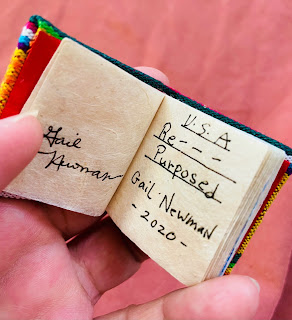 Gail
Newman
U.S.A
Re---
Purposed
Gail Newman
-2020-